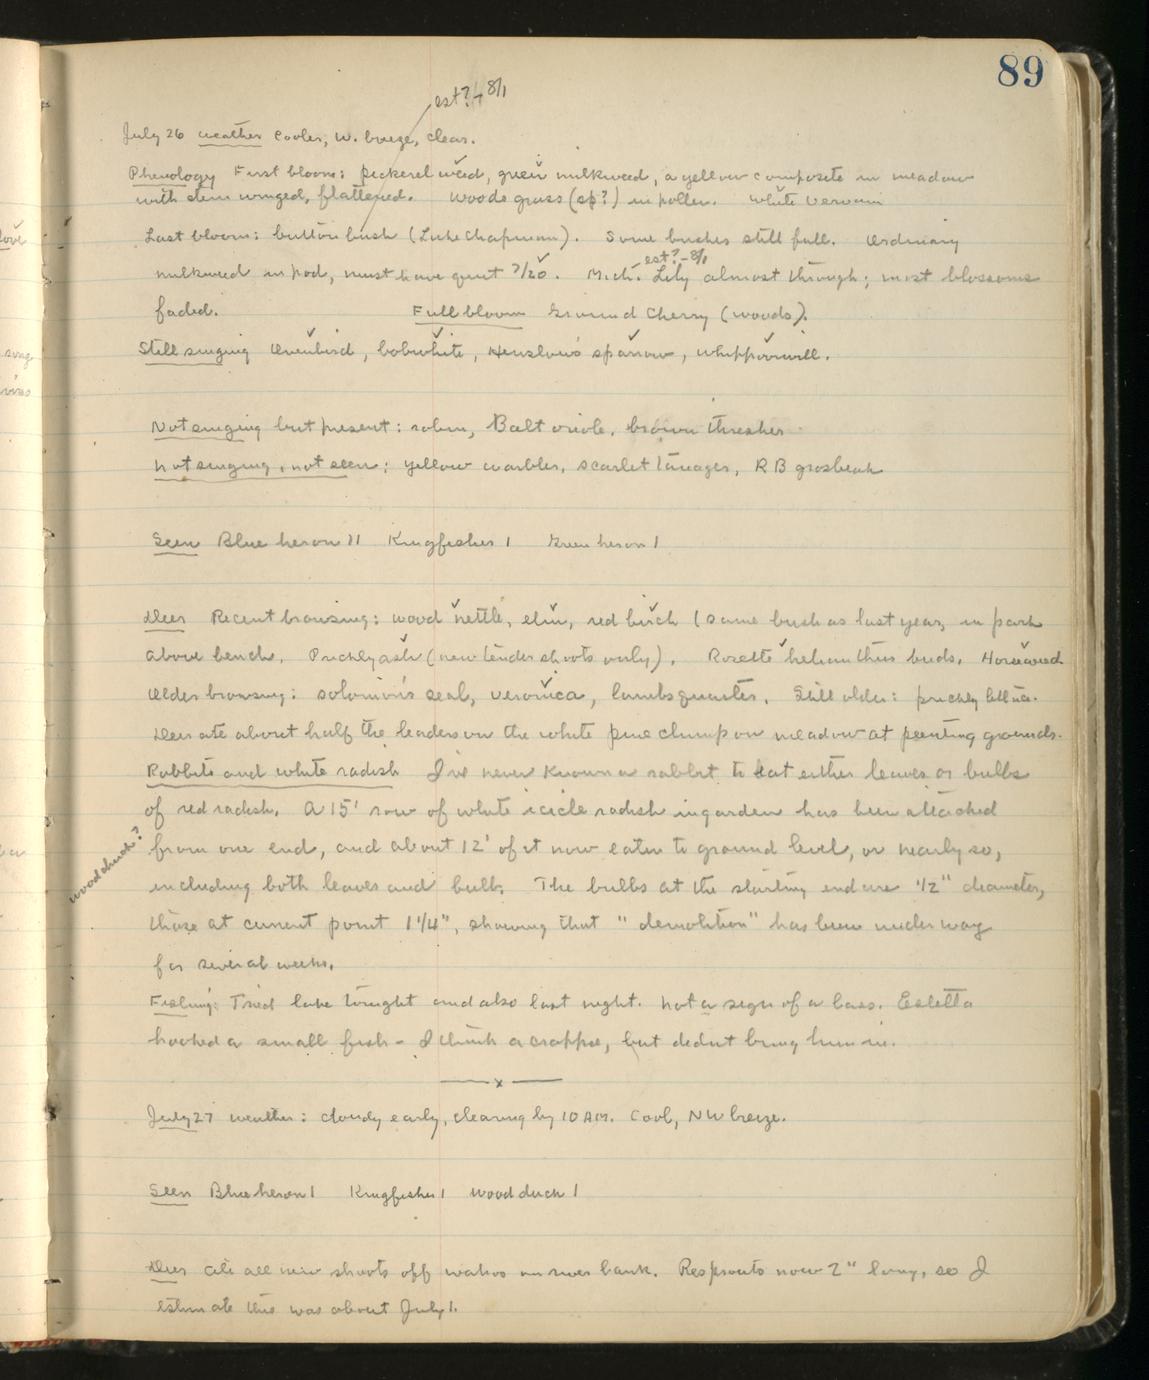 89
est? - 8/1
July 26 weather cooler, W. breeze, clear.
Phenology First bloom: pickerel weed, green milkweed, a yellow composite in meadow
with stem winged, flattened. Woods grass (sp?) in pollen. White vervain
Last bloom: button bush (Lake Chapman). Some bushes still full. Ordinary
est? - 8/1
milkweed in pod, must have quit 7/20. Mich. Lily almost through; most blossoms
faded. Full bloom Ground Cherry (woods).
Still singing Ovenbird, bobwhite, Henslow's sparrow, whippoorwill.
Not singing but present: robin, Balt oriole, brown thresher
Not singing, not seen: yellow warbler, scarlet tanager, RB grosbeak
Seen Blue heron 11 Kingfisher 1 Green heron 1
Deer Recent browsing: wood nettle, elm, red birch (same bush as last year, in park
above bench. Prickly ash (new tender shoots only). Rosette helianthus buds. Horseweed
Older browsing: solomon's seal, veronica, lambsquarter. Still older: prickly lettuce.
Deer ate about half the leaders on the white pine clump on meadow at peenting grounds.
Rabbits and white radish I've never known a rabbit to eat either leaves or bulbs
of red radish. A 15' row of white icicle radish in garden has been attacked
from one end, and about 12' of it now eaten to ground level, or nearly so,
woodchuck?
including both leaves and bulb. The bulbs at the starting end are 1/2" diameter,
those at current point 1 1/4", showing that "demolition" has been under way
for several weeks.
Fishing: Tried lake tonight and also last night. Not a sign of a bass. Estella
hooked a small fish - I think a crappie, but didnt bring him in.
x
July 27 weather: cloudy early, clearing by 10 AM. Cool, NW breeze.
Seen Blue heron 1 Kingfisher 1 Wood duck 1
Deer ate all new shoots off wahoo on river bank. Resprouts now 2" long, so I
estimate this was about July 1.